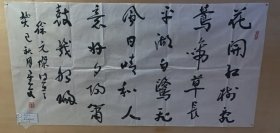 花開紅樹亂
鶯啼草長
平湖白鷺飛
風日晴和人
意好夕陽簫
鼓幾船歸
徐元傑
癸巳秋月